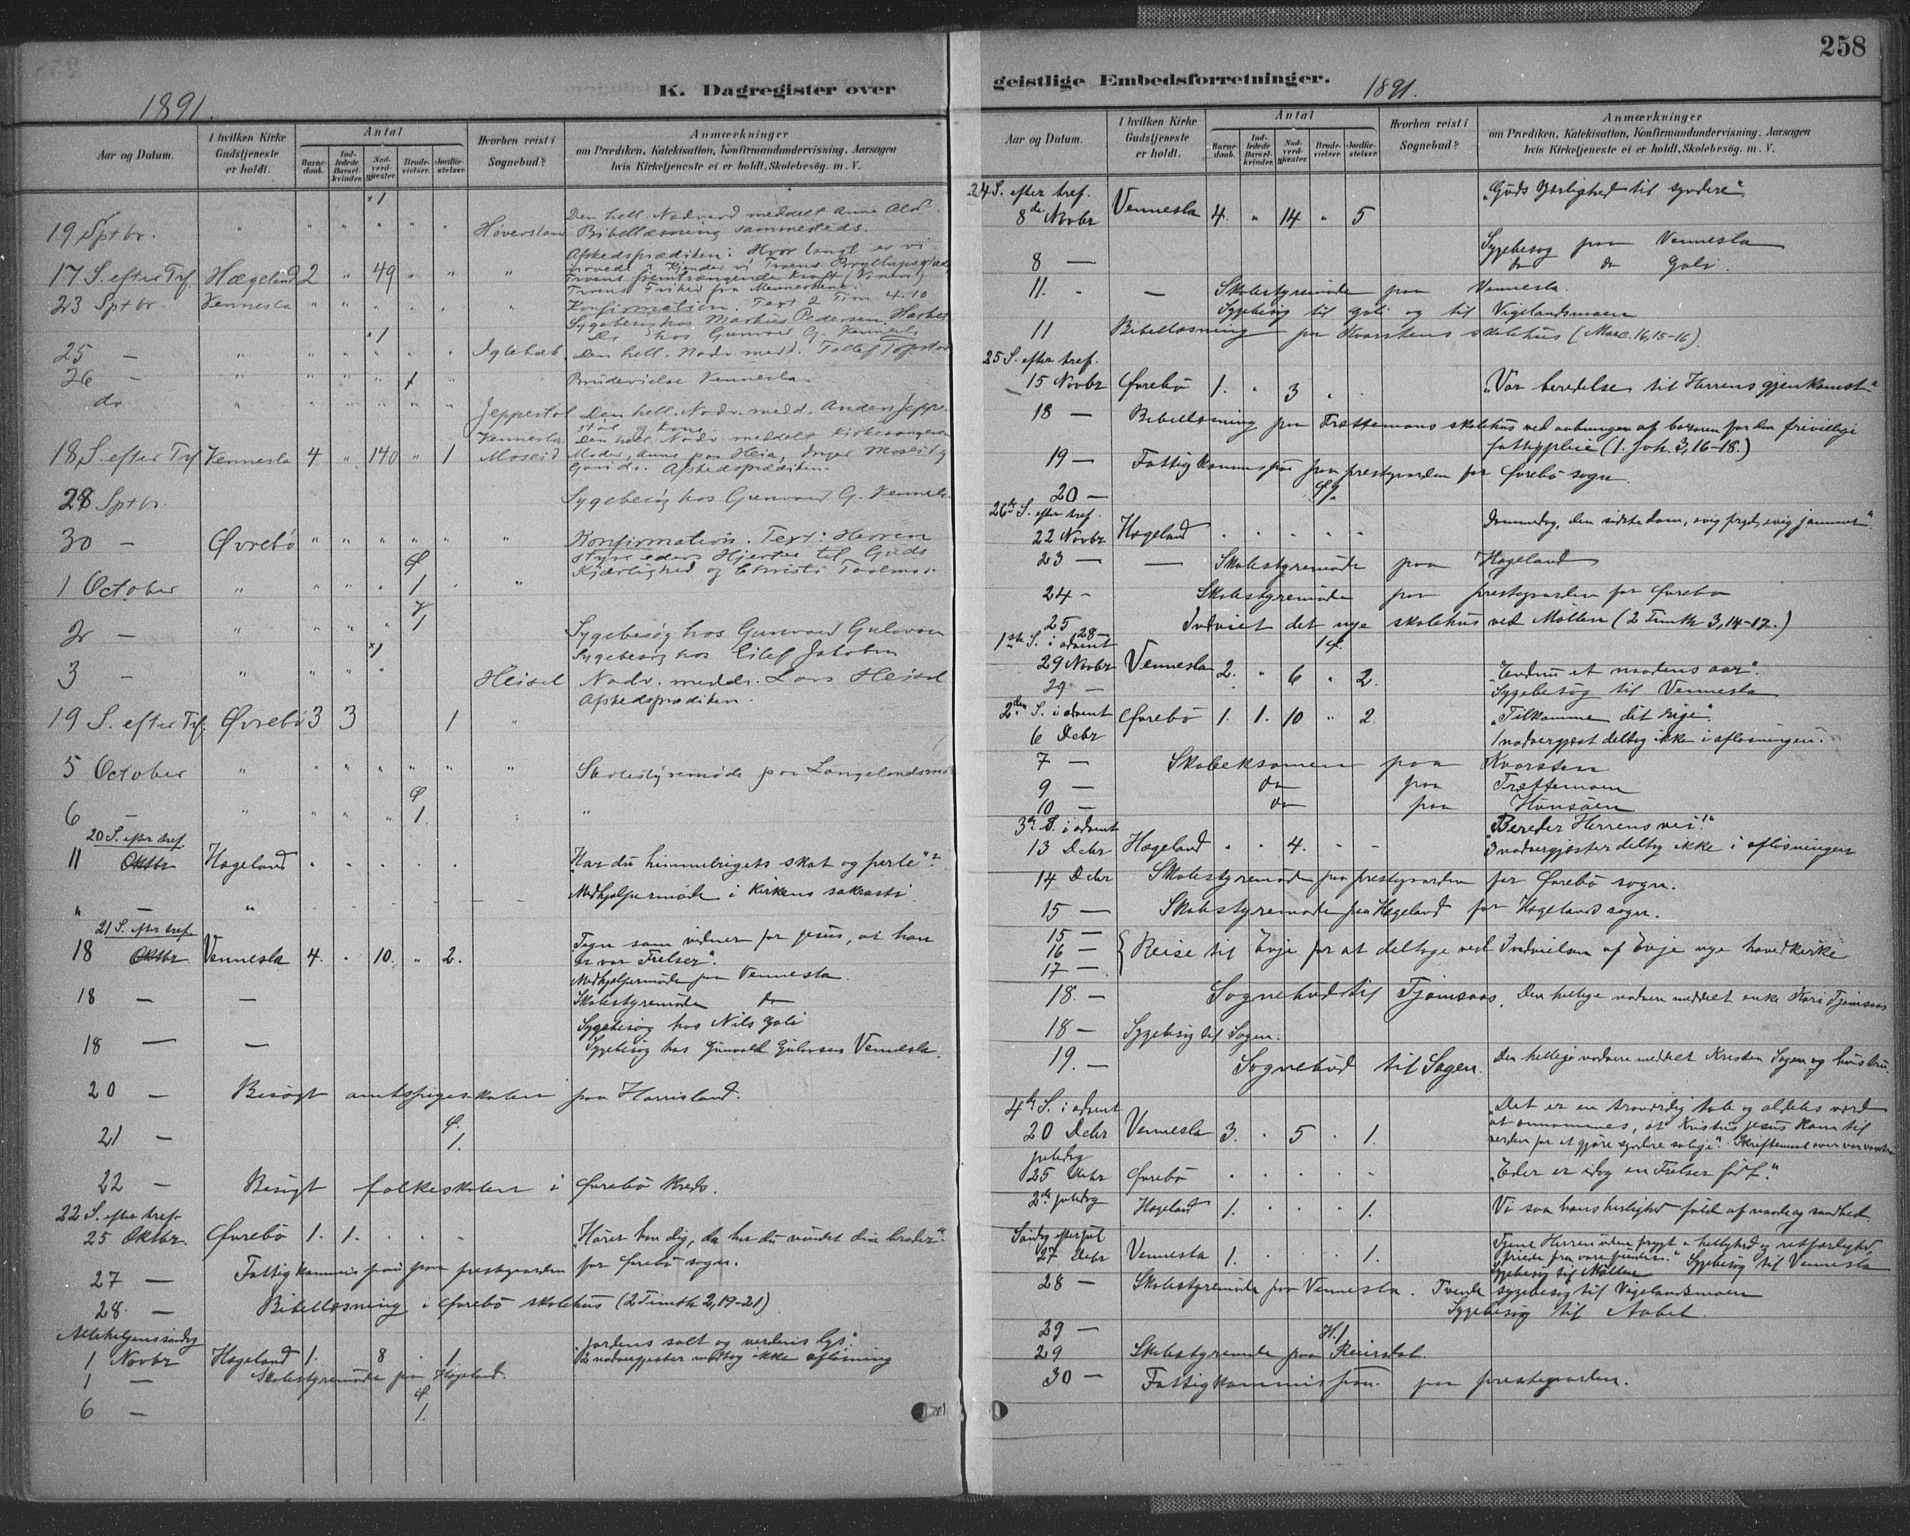 258
K. Dagregister over
geistlige Embedsforretninger.
1891.
1891.
Aar og Datum.
I hvilken Kirke Gudstjeneste er holdt.
Antal
Barnedaab.
Indledede Barselkvinder.
Nadverdgjester.
Brudevielser.
Jordfæstelser.
Hvorhen reist i Sognebud?
Anmærkninger
om Prædiken, Katekisation, Konfirmandundervisning, Aarsagen
hvis Kirketjeneste ei er holdt, Skolebesøg. m. V.
19 Sptbr. Høversland Den hell. Nadverd meddelt Anne
Bibellæsning sammesteds.
Afskedsprædiken: Hvor langt er vi
17 S. efter Trf. Hægeland 2 " 49 " " "
Troens fremtrængende Kraft
23 Sptbr. Vennesla Konfirmation. Text 2 Tim 4.10
Sygebesøg hos Markus Pedersen
Do hos Gunvald G. Vennesla
25 — Iglebæk Den hell. Nadv. medd. Tollef
26 — 1 Brudevielse Vennesla
do Jeppestøl Den hell. Nadv. medd. Anders Jeppestøl og Kone
Vennesla Den hell. Nadv. meddelt Kirkesangeren
18 S. efter Trf Vennesla 4 " 140 " 1 Moseid Moder, Anne paa Heia, Inger Moseid
Afskedsprædiken.
28 Sptbr. Sygebesøg hos Gunvald G. Vennesla
30 — Øvrebø Konfirmation. Text: Herren
styre eders Hjerter til Guds
Kjærlighed og Christi Taalmod.
1 October Ø 1
2 — V 1 Sygebesøg hos Gunvald Gulovsen
Sygebesøg hos Eilef Jakobsen
3 — 1 Heisel Nadv. medd. Lars Heisel
Afskedsprædiken.
19 S. efter Trf. Øvrebø 3 3 1 "
5 October Skolestyremøde paa Langelandsmo
6 — Ø 1. "
20 S. efter tref.
11 Oktbr Hægeland "Har du himmelrigets skat og perle"?
" — " Medhjælpermøde i Kirkens sakristi
21 S. efter tref.
18 Oktbr Vennesla 4. " 10. " 2. Tegn som vidner for Jesus, at han
er vor Frelser".
Medhjælpermøde paa Vennesla.
18 — — Skolestyremøde do
Sygebesøg hos Nils Gali
18 — — Sygebesøg hos Gunvald Gulovsen Vennesla.
20 — Besøgt amtspigeskolen paa Harrisland.
21 — Ø. 1.
22 — Besøgt folkeskolen i Øvrebø Kreds.
22 S. efter tref.
25 Oktbr Øvrebø 1. 1. "Hører han dig, da har du vundet din broder."
27 — Fattigkommission paa prestegaarden for Øvrebø sogn.
28 — Bibellæsning i Øvrebø skolehus (2 Timoth 2, 19-21)
Allehelgenssøndag "Jordens salt og verdens lys".
1 Novbr Hægeland 1. 8 1. 2 nadvergjester modtog ikke afløsning
1 — Skolestyremøde paa Hægeland.
6 — Ø 1.
Aar og Datum.
I hvilken Kirke Gudstjeneste er holdt.
Antal
Barnedaab.
Indledede Barselkvinder.
Nadverdgjester.
Brudevielser.
Jordfæstelser.
Hvorhen reist i Sognebud?
Anmærkninger
om Prædiken, Katekisation, Konfirmandundervisning, Aarsagen
hvis Kirketjeneste ei er holdt, Skolebesøg. m. V.
24 S. efter tref. "Guds kjærlighed til syndere"
8de Novbr Vennesla 4. " 14 " 5
8 — Sygebesøg paa Vennesla
do do Gali.
11. " — Skolestyremøde paa Vennesla.
Sygebesøg til Gali og til Vigelandsmoen
11 Bibellæsning paa Kvarstens skolehus (Marc. 16, 15-16).
25 S. efter tref.
15 Novbr Øvrebø 1. " 3 "Vor beredelse til Herrens gjenkomst"
18 — Bibellæsning paa Trættemoens skolehus ved aabningen af basaren for den frivillige
fattigpleie (1. Joh. 3, 16-18.)
19 — Fattigkommission paa prestegaarden for Øvrebø sogn.
20 — Ø 1.
26de S. efter tref.
22 Novbr Hægeland Dommedag, den sidste dom, evig fryd, evig jammer"
23 — — Skolestyremøde paa Hægeland
24 — Skolestyremøde paa prestegaarden for Øvrebø
25 Indviet det nye skolehus ved Mollen (2 Timoth 3, 14-17.)
28 — 1 Ø.
1ste S. i advent
29 Novbr Vennesla 2. " 6 " 2. "Endnu et naadens aar".
29 — Sygebesøg til Vennesla
2den S. i advent Øvrebø 1. 1. 10 " 2. "Tilkomme dit rige".
6 Dcbr 1 nadvergjest deltog ikke i afløsningen.
7 — Skoleeksamen paa Kvarsten
9 — do paa Trættemoen
10 — do paa Hunsøen
3de S. i advent "Bereder Herrens vei!"
13 Dcbr Hægeland " " 4. " " 3 nadvergjester deltog ikke i afløsningen
14 Dcbr Skolestyremøde paa prestegaarden for Øvrebø sogn.
15 — Skolestyremøde paa Hægeland for Hægeland sogn.
15 —
16 — Reise til Evje for at deltage ved Indvielsen af Evje nye hovedkirke
17 —
18. — Sognebud til Tjomsaas. Den hellige nadvere meddelt enke Kari Tjomsaas
18 — Sygebesøg til Sagen.
19. — Sognebud til Sagen. Den hellige nadvere meddelt Kristen Sagen og hustru.
4de S. i advent "Det er en troværdig tale og aldeles værd
20 Dcbr Vennesla 3. " 5 " 1. at annammes, at Kristus Jesus kom til
verden for at gjøre syndere salige".
juledag
25 Dcbr Øvrebø "Eder er idag en Frelser født".
2de juledag Hægeland 1. 1. Vi saa hans herlighed fuld af naade og sandhed.
Søndag efter jul Tjene Herren uden frygt i hellighed og retfærdighed,
27 Dcbr Vennesla 1. 1. friede fra vore fienders". Sygebesøg til Vennesla
Sygebesøg til Mollen
28 — Skolestyremøde paa Vennesla. Tvende sygebesøg til Vigelandsmoen
Sygebesøg til Aabel.
29 — H. 1
29 Skolestyremøde paa Reiersdal.
30 — Fattigkommission paa prestegaarden.